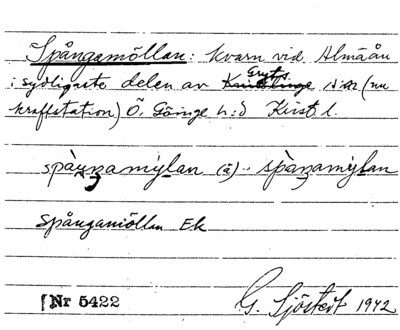 Spångamöllan: kvarn vid Almaån
i sydligaste delen av Gryts s:n (nu
kraftstation) Ö. Göinge h:d Krist. l.
spàŋŋamy̍lan (ä).. spàŋamy̍lan
Spångamöllan Ek
Nr 5422
G. Sjöstedt 1942